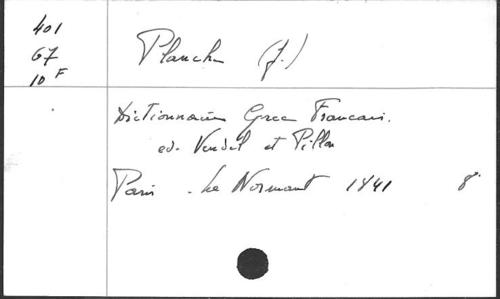 401
G7
10 F
Planche (J.)
Dictionnaire Grec Francais.
ed. Vendel et Pillon
Paris - Le Normant 1841 8°